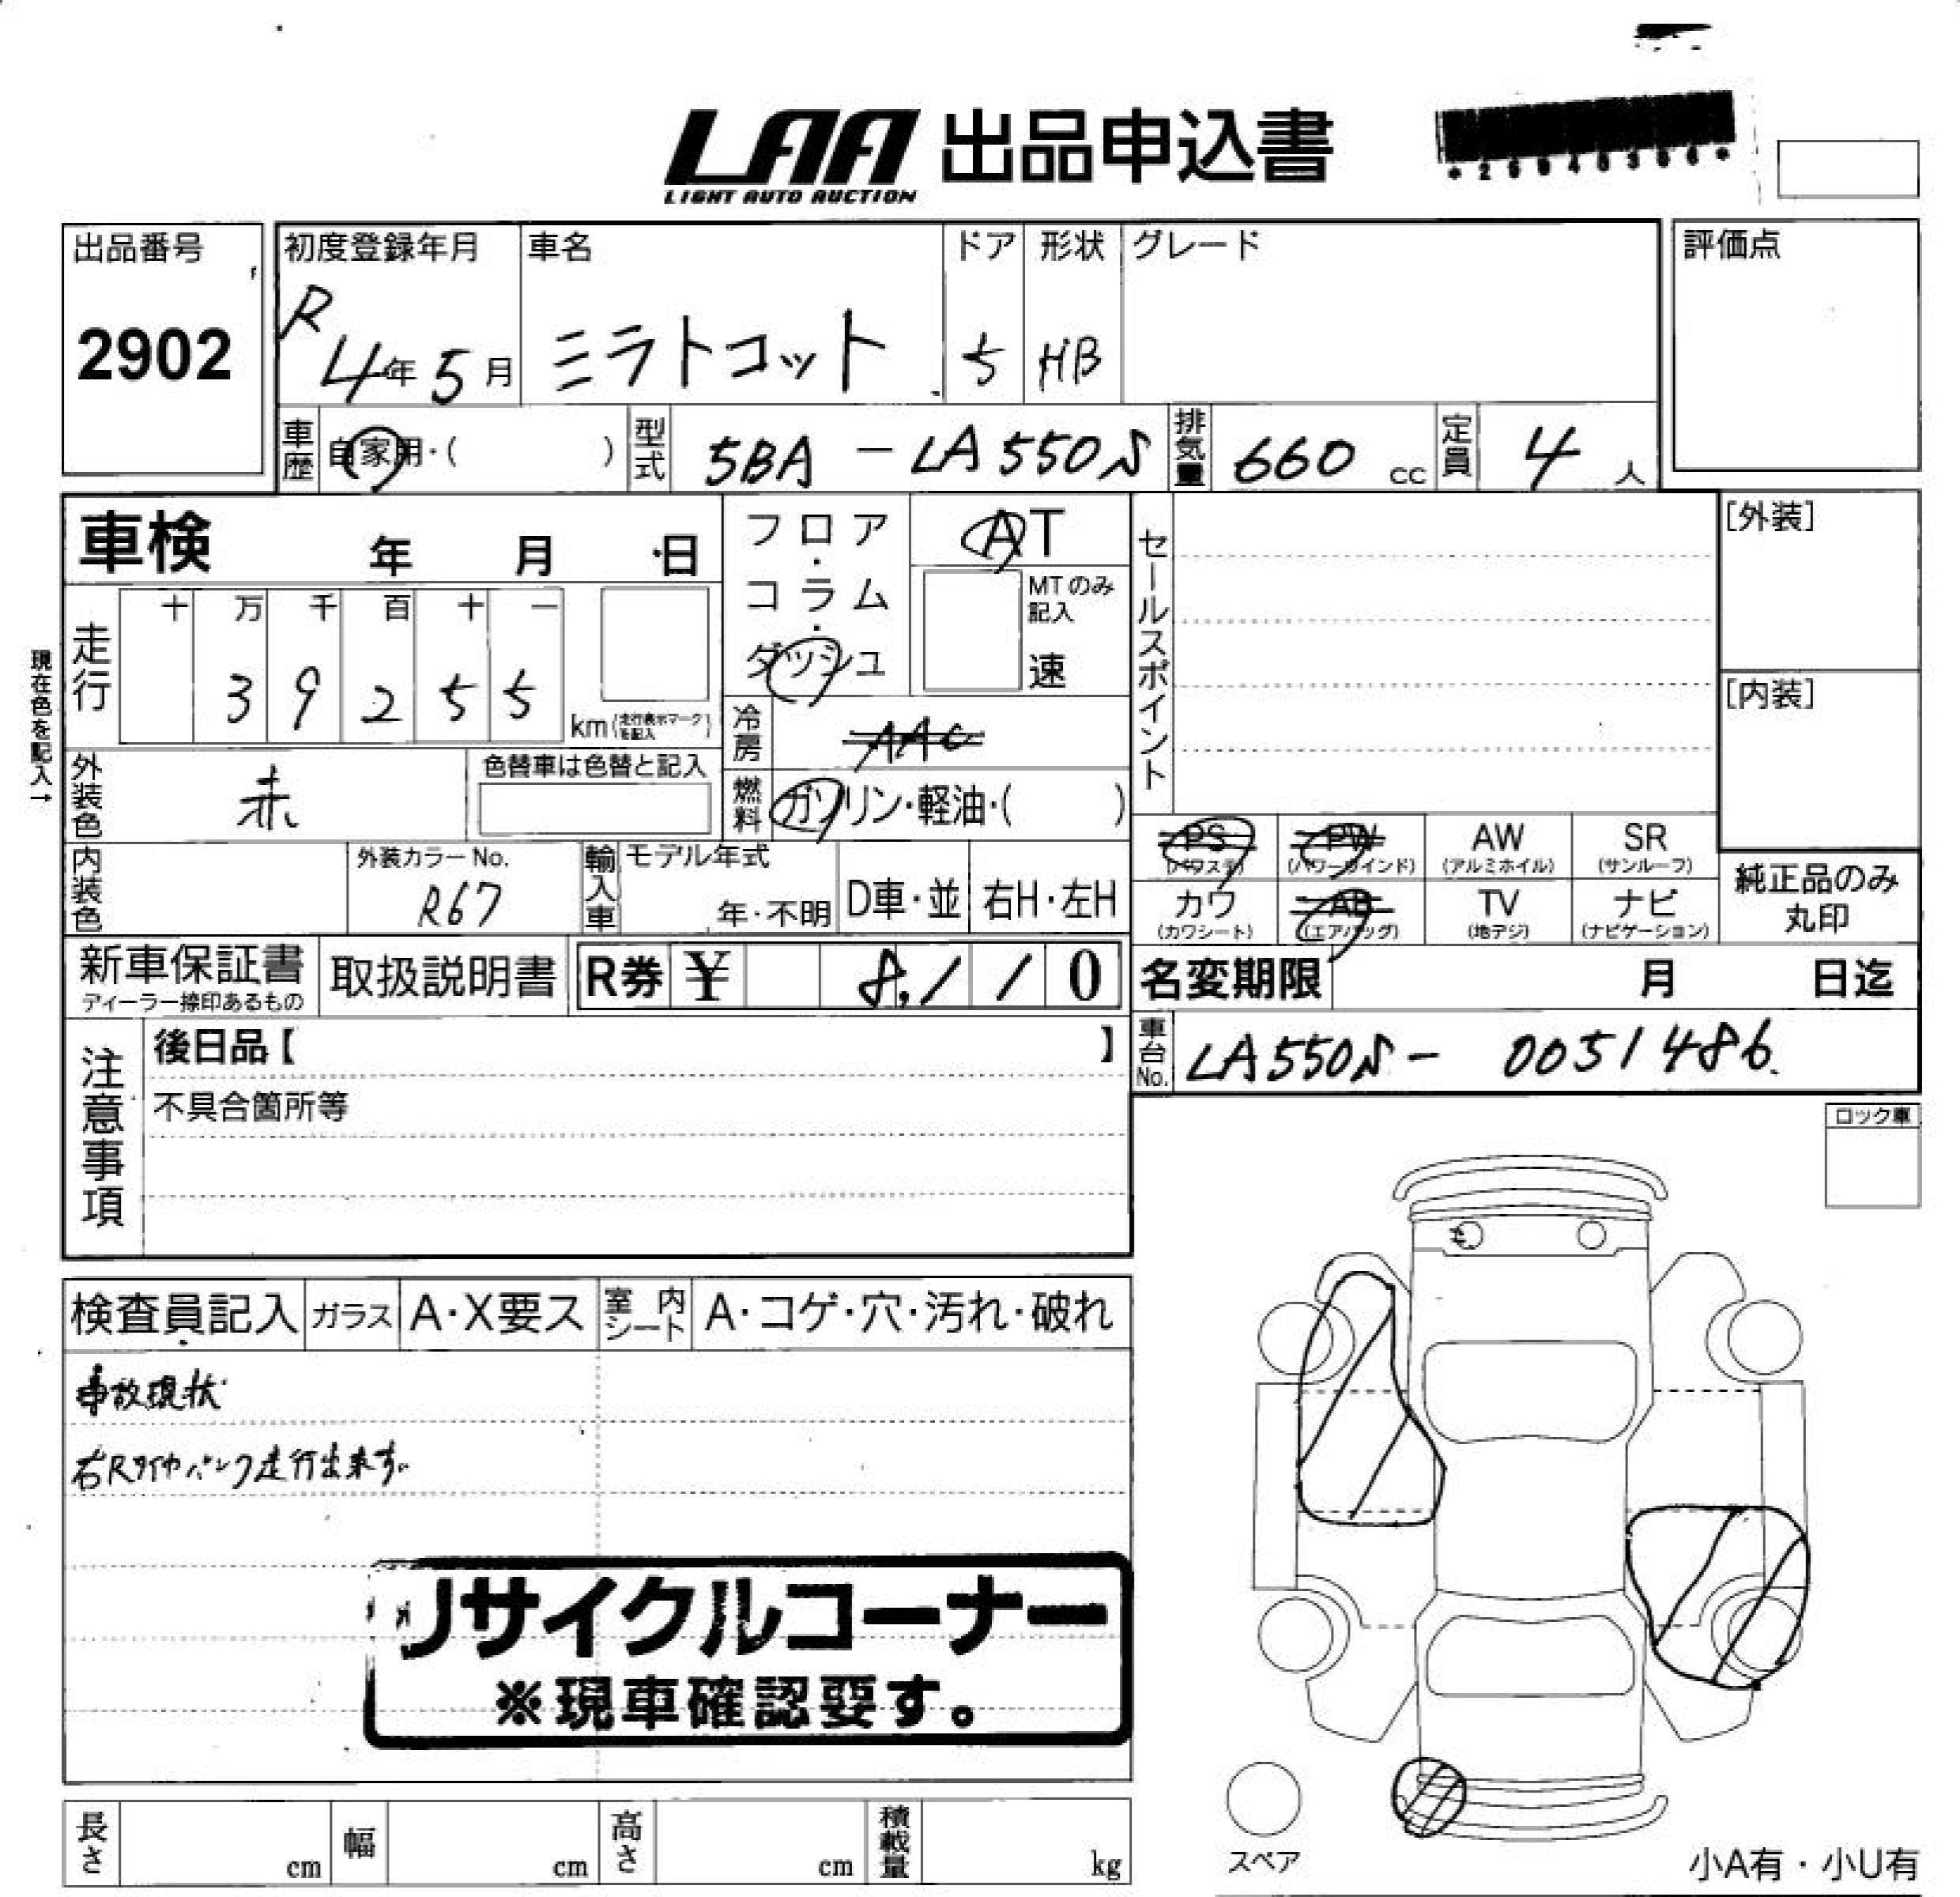 LAA 出品申込書
LIGHT AUTO AUCTION
出品番号
2902
初度登録年月
R 4年5月
車名
ミラトコット
ドア
5
形状
HB
グレード
評価点
車歴
自家用・( )
型式
5BA - LA550S
排気量
660 cc
定員
4 人
車検 年 月 日
フロア・コラム・ダッシュ
AT
MTのみ記入
速
セールスポイント
[外装]
[内装]
現在色を記入→
走行
十 万 千 百 十 一
3 9 2 5 5
km(走行表示マークを記入)
冷房
AAC
外装色
赤
色替車は色替と記入
燃料
ガソリン・軽油・( )
PS
(パワステ)
PW
(パワーウインド)
AW
(アルミホイル)
SR
(サンルーフ)
カワ
(カワシート)
AB
(エアバッグ)
TV
(地デジ)
ナビ
(ナビゲーション)
純正品のみ
丸印
内装色
外装カラーNo.
R67
輸入車
モデル年式
年・不明
D車・並
右H・左H
新車保証書
ディーラー捺印あるもの
取扱説明書
R券 ¥ 8,110
名変期限 月 日迄
車台No.
LA550S- 0051486
注意事項
後日品【 】
不具合箇所等
ロック車
検査員記入
ガラス
A・X要ス
室内シート
A・コゲ・穴・汚れ・破れ
事故現状
右Rタイヤパンク走行出来ず。
リサイクルコーナー
※現車確認要す。
長さ cm
幅 cm
高さ cm
積載量 kg
スペア
小A有・小U有